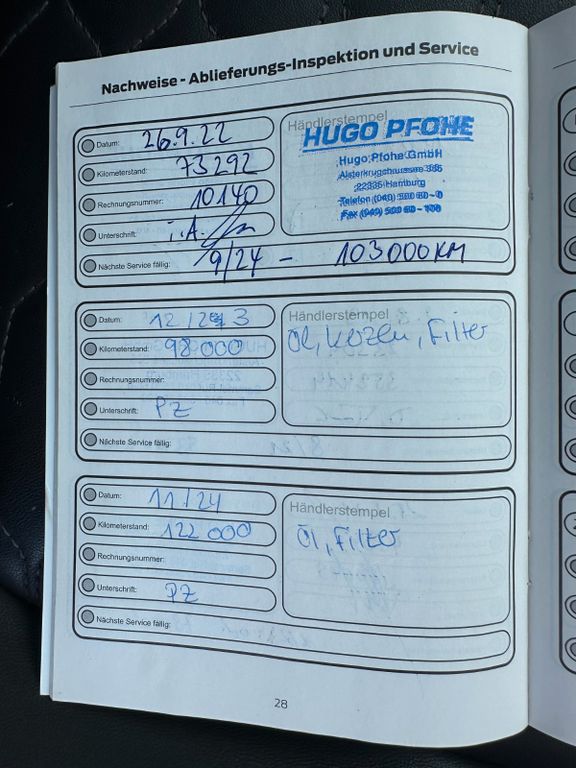 Nachweise - Ablieferungs-Inspektion und Service
Datum: 26.9.22
Kilometerstand: 73292
Rechnungsnummer: 10140
Unterschrift: i.A.
Nächste Service fällig: 9/24 - 103000KM
Händlerstempel
HUGO PFOHE
Hugo Pfohe GmbH
22335 Hamburg
Telefon (040) 500 60 - 0
Fax (040) 500 60 - 108
Datum: 12/23
Kilometerstand: 98000
Rechnungsnummer:
Unterschrift: PZ
Nächste Service fällig:
Händlerstempel
Öl, Kerzen, Filter
Datum: 11/24
Kilometerstand: 122 000
Rechnungsnummer:
Unterschrift: PZ
Nächste Service fällig:
Händlerstempel
Öl, Filter
28